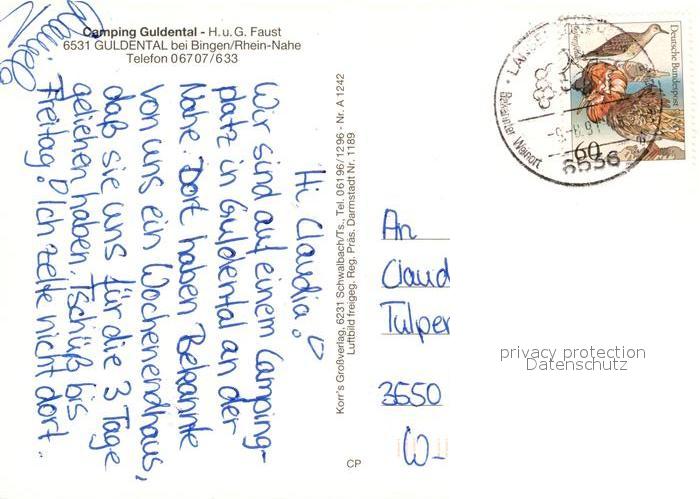 Camping Guldental - H. u. G. Faust
6531 GULDENTAL bei Bingen/Rhein-Nahe
Telefon 06707/633
Hi Claudia!
Wir sind auf einem Camping-
platz in Guldental an der
Nahe. Dort haben Bekannte
von uns ein Wochenendhaus,
daß sie uns für die 3 Tage
geliehen haben. Tschüß bis
Freitag! Ich zelte nicht dort.
Korr's Großverlag, 6231 Schwalbach/Ts., Tel. 06196/1296 - Nr. A 1242
Luftbild freigeg. Reg. Präs. Darmstadt Nr. 1189
CP
An
Claud
Tulper
3550
W-
Deutsche Bundespost
60
Bekannter Weinort
6536
privacy protection
Datenschutz